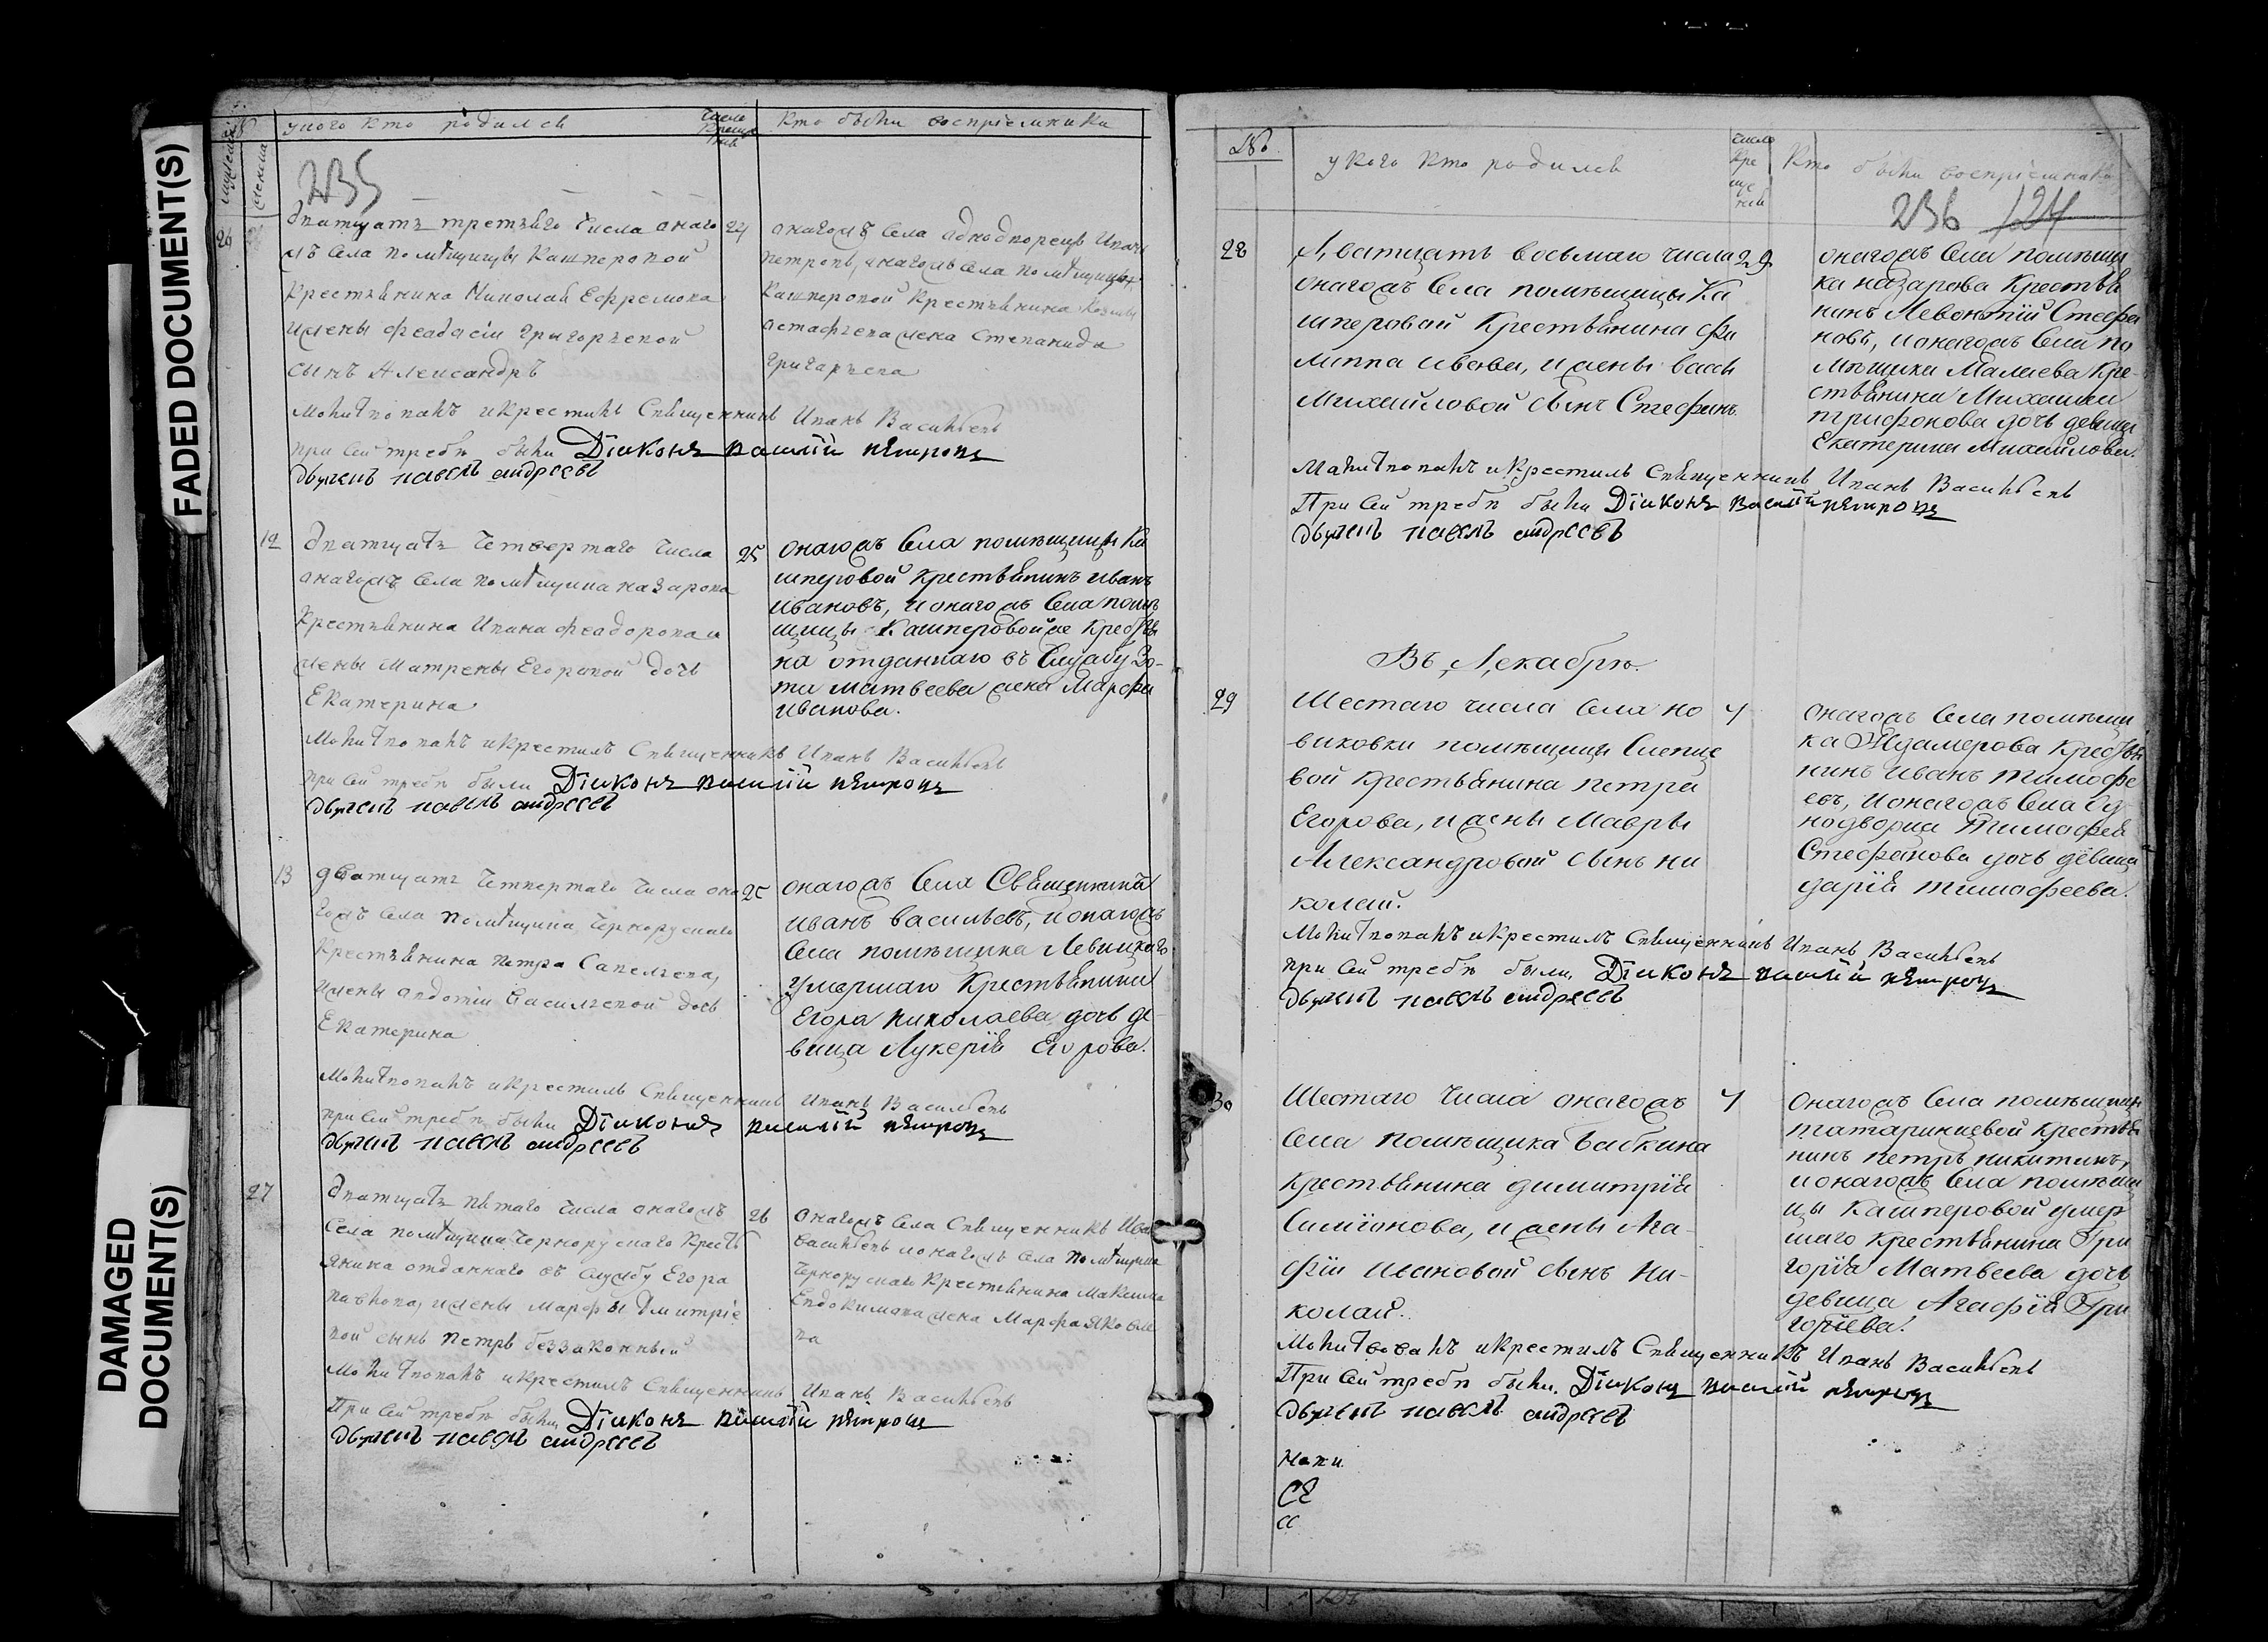 FADED DOCUMENT(S)
DAMAGED
DOCUMENT(S)
у кого кто родился
число крещения
кто были восприемники
235
26
дватцатъ третьяго числа онаго
жъ села помѣщицы Кашперовой
крестьянина Николая Ефремова
и жены Феадосіи Григорьевой
сынъ Александръ
24
онагожъ села аднодворецъ Иванъ
Петровъ, онагожъ села помѣщицы
Кашперовой крестьянина Козмы
Астафьева жена Степанида
Григарьева
Молитвовалъ и крестилъ Священникъ Иванъ Васильевъ
при сей требѣ были Дїаконъ Василїй Пѣтровъ
дьячекъ павелъ андреевъ
12
дватцать четвертаго числа
онагожъ села помѣщика Назарова
крестьянина Ивана Феадорова и
жены Матрены Егоровой дочь
Екатерина
25
онагожъ села помѣщицы Ка
шперовой крестьянинъ Иванъ
Ивановъ, и онагожъ села помѣ
щицы Кашперовой же крестья
на отданнаго въ службу Зо-
та Матвеева жена Марфа
Иванова.
Молитвовалъ и крестилъ Священникъ Иванъ Васильевъ
при сей требѣ были Дїаконъ Василїй Пѣтровъ
дьячекъ павелъ андреевъ
13
дватцать четвертаго числа она
гожъ села помѣщика Чернорускаго
крестьянина Петра Савельева,
и жены Авдотіи Васильевой дочь
Екатерина
25
онагожъ села Священникъ
Иванъ Васильевъ, и онагожъ
села помѣщика Левицкаго
умершаго крестьянина
Егора Николаева дочь де-
вица Лукерїя Егорова.
Молитвовалъ и крестилъ Священникъ Иванъ Васильевъ
при сей требѣ были Дїаконъ Василїй Пѣтровъ
дьячекъ павелъ андреевъ
27
дватцать пятаго числа онагожъ
села помѣщика Чернорускаго кресть
янина отданнаго въ службу Егора
Павлова, и жены Марфы Дмитріе
вой сынъ Петръ беззаконный
26
онагожъ села Священникъ Иванъ
Васильевъ и онагожъ села помѣщика
Чернорускаго крестьянина Максима
Евдокимова жена Марфа Яковле
ва
Молитвовалъ и крестилъ Священникъ Иванъ Васильевъ
При сей требѣ были Дїаконъ Василїй Пѣтровъ
дьячекъ павелъ андреевъ
у кого кто родился
число крещений
Кто были восприемники
236 124
28
Дватцать восьмаго числа
онагожъ села помѣщицы Ка
шперовой крестьянина Фи
липпа Львова, и жены Васы
Михайловой сынъ Стефанъ
29
онагожъ села помѣщи
ка Назарова крестья
нинъ Левонтїй Стефа
новъ, и онагожъ села по
мѣщика Малаева кре-
стьянина Михаила
Трифонова дочь девица
Екатерина Михайлова.
Молитвовалъ и крестилъ Священникъ Иванъ Васильевъ
При сей требѣ были Дїаконъ Василїй Пѣтровъ
дьячекъ павелъ андреевъ
Въ Декабрѣ
29
Шестаго числа села Но
виковки помѣщицы Слепце
вой крестьянина Петра
Егорова, и жены Мавры
Александровой сынъ Ни
колай.
7
онагожъ села помѣщи
ка крестья
нинъ Иванъ Тимофе
евъ, и онагожъ села од
нодворца Тимофея
Стефанова дочь девица
Дарїя Тимофеева.
Молитвовалъ и крестилъ Священникъ Иванъ Васильевъ
при сей требѣ были Дїаконъ Василїй Пѣтровъ
дьячекъ павелъ андреевъ
30
Шестаго числа онагожъ
села помѣщика Бабкина
крестьянина Димитрїя
Симїонова, и жены Ага-
фїи Ивановой сынъ Ни-
колай.
7
онагожъ села помѣщицы
Татаринцевой крестья
нинъ Петръ Никитинъ,
и онагожъ села помѣщи
цы Кашперовой умер
шаго крестьянина Гри
горїя Матвеева дочь
девица Агафїя Гри
горїева.
Молитвовалъ и крестилъ Священникъ Иванъ Васильевъ
При сей требѣ были Дїаконъ Василїй Пѣтровъ
дьячекъ павелъ андреевъ